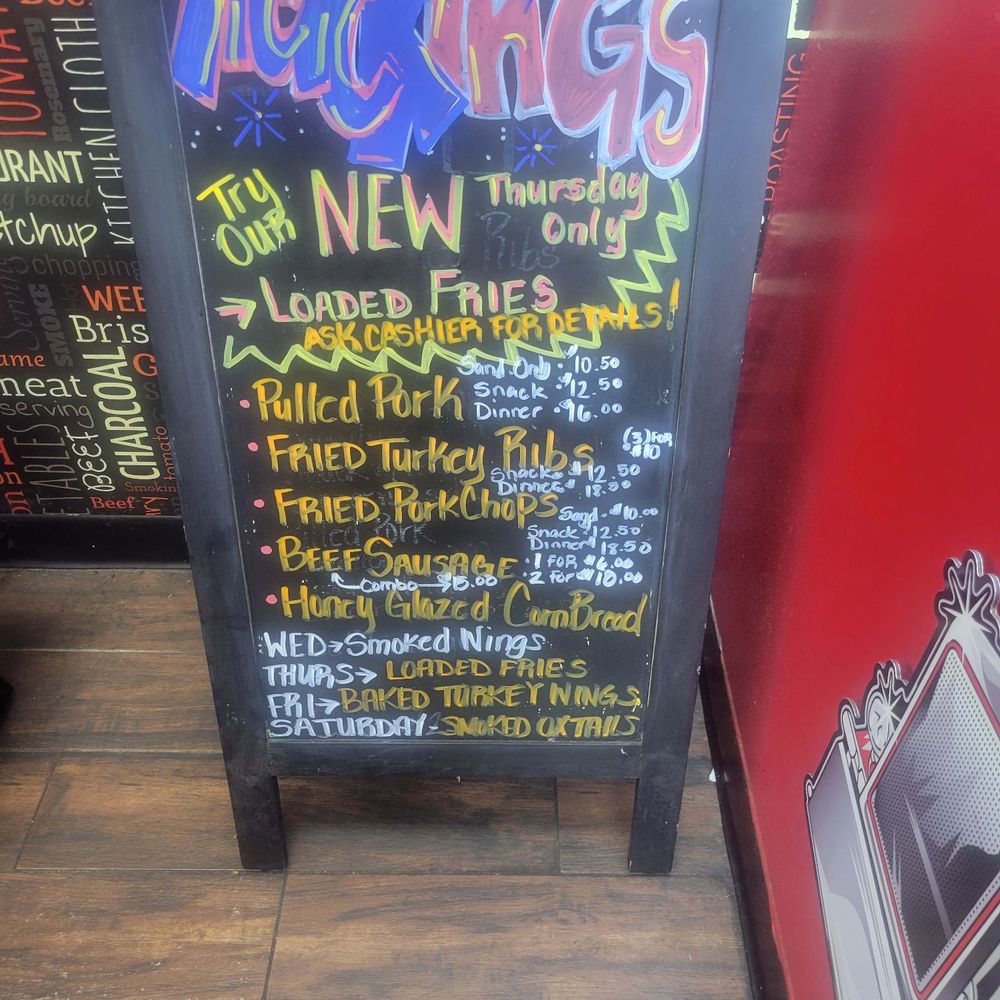 Try Our NEW Thursday Only
Ribs
→ LOADED FRIES
ASK CASHIER FOR DETAILS!
• Pulled Pork
Sand Only • $10.50
Snack • $12.50
Dinner • $16.00
• FRIED Turkey Ribs
(3) FOR $10
Snack • $12.50
Dinner • $18.50
• FRIED PorkChops
Sand. • $10.00
Snack • 12.50
Dinner $18.50
• BEEF SAUSAGE
• 1 FOR $6.00
• 2 For $10.00
Combo →
• Honey Glazed CornBread
WED → Smoked Wings
THURS → LOADED FRIES
FRI → BAKED TURKEY WINGS
SATURDAY SMOKED OXTAILS
TOMA
Rosemary
KITCHEN CLOTH
URANT
g board
etchup
chopping
SMOKE
WEE
Bris
ame
meat
serving
CHARCOAL
BEEF
ETABLES
tomato
Smokin
Beef
on
ROASTING